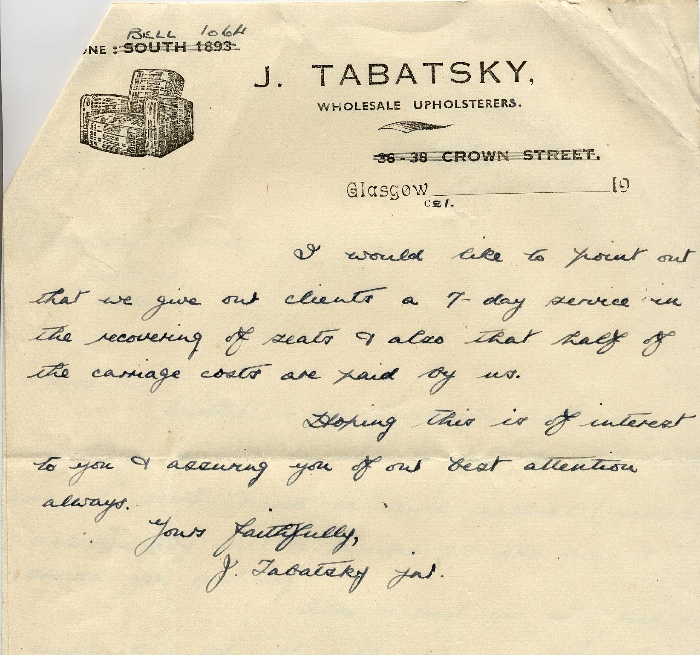 BELL 1064
NE : SOUTH 1893
J. TABATSKY,
WHOLESALE UPHOLSTERERS.
36-38 CROWN STREET.
Glasgow 19
C.5/.
I would like to point out
that we give our clients a 7-day service in
the recovering of seats & also that half of
the carriage costs are paid by us.
Hoping this is of interest
to you & assuring you of our best attention
always.
Yours faithfully,
J. Tabatsky jnr.